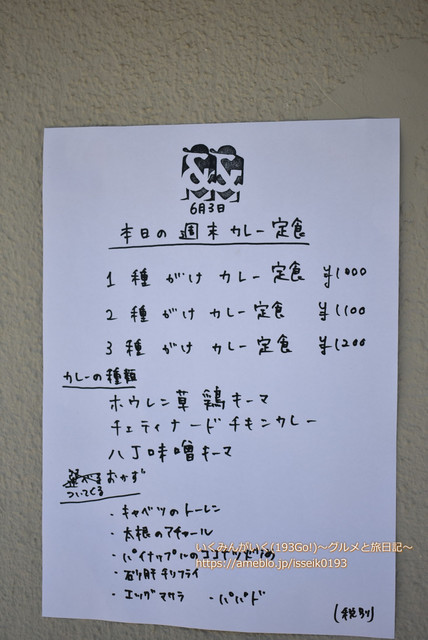 &&
6月3日
本日の週末カレー定食
1種がけカレー定食 ¥1000
2種がけカレー定食 ¥1100
3種がけカレー定食 ¥1200
カレーの種類
ホウレン草鶏キーマ
チェティナードチキンカレー
八丁味噌キーマ
おかず
ついてくる
・キャベツのトーレン
・大根のアチャール
・パイナップルの
いくみんがいく(193Go!)～グルメと旅日記～
https://ameblo.jp/isseik0193
・砂肝チリフライ
・エッグマサラ ・パパド
(税別)